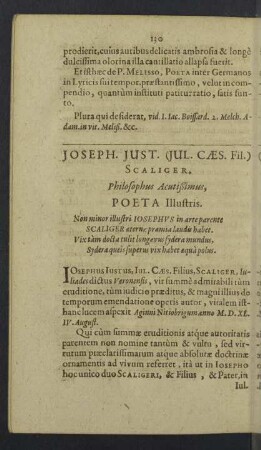 120
prodierit, cuius auribus delicatis ambrosia & longè
dulcissima olorina illa cantillatio allapsa fuerit.
Et isthæc de P. MELISSO, POETA inter Germanos
in Lyricis sui tempor. præstantissimo, velut in com-
pendio, quantùm instituti patitur ratio, satis sun-
to.
Plura qui desiderat, vid. I. Iac. Boissard. 2. Melch. A-
dam. in vit. Meliss. &c.
JOSEPH. JUST. (JUL. CÆS. Fil.)
SCALIGER,
Philosophus Acutissimus,
POETA Illustris.
Non minor illustri IOSEPHVS in arte parente
SCALIGER æternæ præmia laudis habet.
Vix tàm docta tulit longævus sydera mundus,
Sydera queis superus vix habet æqua polus.
IOSEPHUS IUSTUS, IUL. CÆS. Filius, SCALIGER, Iu-
liades dictus Veronensis, vir summè admirabilis tùm
eruditione, tùm iudicio præditus, & magni illius de
temporum emendatione operis autor, vitalem ist-
hanc lucem aspexit Aginni Nitiobrigum anno M. D. XL.
IV. August.
Qui cùm summæ eruditionis atque autoritatis
parentem non nomine tantùm & vultu, sed vir-
tutum præclarissimarum atque absolutæ doctrinæ
ornamentis ad vivum referret, ità ut in IOSEPHO
hoc unico duo SCALIGERI, & Filius, & Pater, in
Iul.